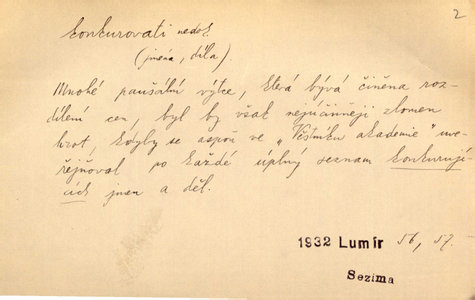 2
konkurovati nedok.
(jména, díla)
Mnohé paušální výtce, která bývá činěna roz-
dílení cen, byl by však nejúčinněji zlomen
hrot, kdyby se aspoň ve „Věstníku akademie" uve-
řejňoval po každé úplný seznam konkurují-
cích jmen a děl.
1932 Lumír 56, 57.-
Sezima